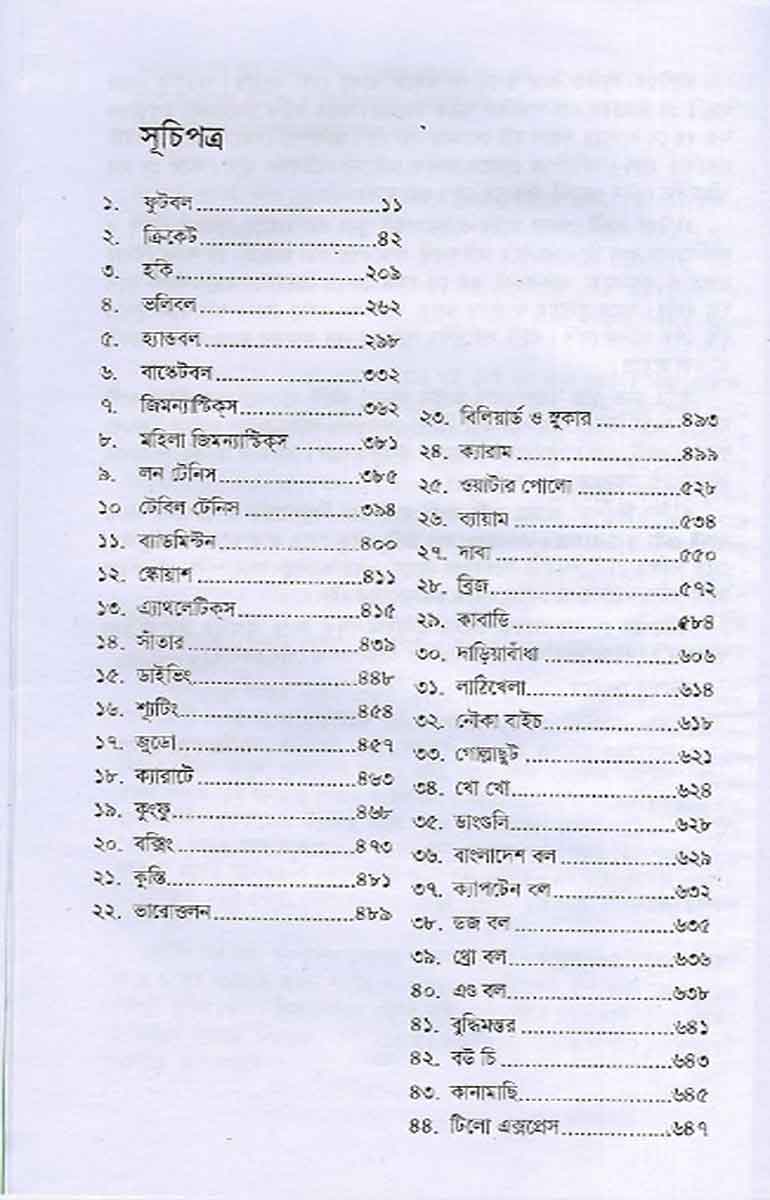 সূচিপত্র
১. ফুটবল....................১১
২. ক্রিকেট....................৪২
৩. হকি....................২০৯
৪. ভলিবল....................২৬২
৫. হ্যান্ডবল....................২৯৮
৬. বাস্কেটবল....................৩৩২
৭. জিমন্যাস্টিক্স....................৩৬২
৮. মহিলা জিমন্যাস্টিক্স ....................৩৮১
৯. লন টেনিস....................৩৮৫
১০ টেবিল টেনিস....................৩৯৪
১১. ব্যাডমিন্টন....................৪০০
১২. স্কোয়াশ....................৪১১
১৩. এ্যাথলেটিক্স....................৪১৫
১৪. সাঁতার....................৪৩৯
১৫. ডাইভিং....................৪৪৮
১৬. শ্যূটিং....................৪৫৪
১৭. জুডো....................৪৫৭
১৮. ক্যারাটে....................৪৬৩
১৯. কুংফু....................৪৬৮
২০. বক্সিং....................৪৭৩
২১. কুস্তি....................৪৮১
২২. ভারোত্তলন....................৪৮৯
২৩. বিলিয়ার্ড ও স্নুকার ....................৪৯৩
২৪. ক্যারাম....................৪৯৯
২৫. ওয়াটার পোলো ....................৫২৮
২৬. ব্যায়াম....................৫৩৪
২৭. দাবা....................৫৫০
২৮. ব্রিজ....................৫৭২
২৯. কাবাডি....................৫৮৪
৩০. দাড়িয়াবাঁধা....................৬০৬
৩১. লাঠিখেলা....................৬১৪
৩২. নৌকা বাইচ....................৬১৮
৩৩. গোল্লাছুট ....................৬২১
৩৪. খো খো....................৬২৪
৩৫. ডাংগুলি....................৬২৮
৩৬. বাংলাদেশ বল....................৬২৯
৩৭. ক্যাপটেন বল....................৬৩২
৩৮. ডজ বল....................৬৩৫
৩৯. থ্রো বল....................৬৩৬
৪০. এণ্ড বল....................৬৩৮
৪১. বুদ্ধিমন্তর ....................৬৪১
৪২. বউ চি....................৬৪৩
৪৩. কানামাছি....................৬৪৫
৪৪. টিলো এক্সপ্রেস....................৬৪৭